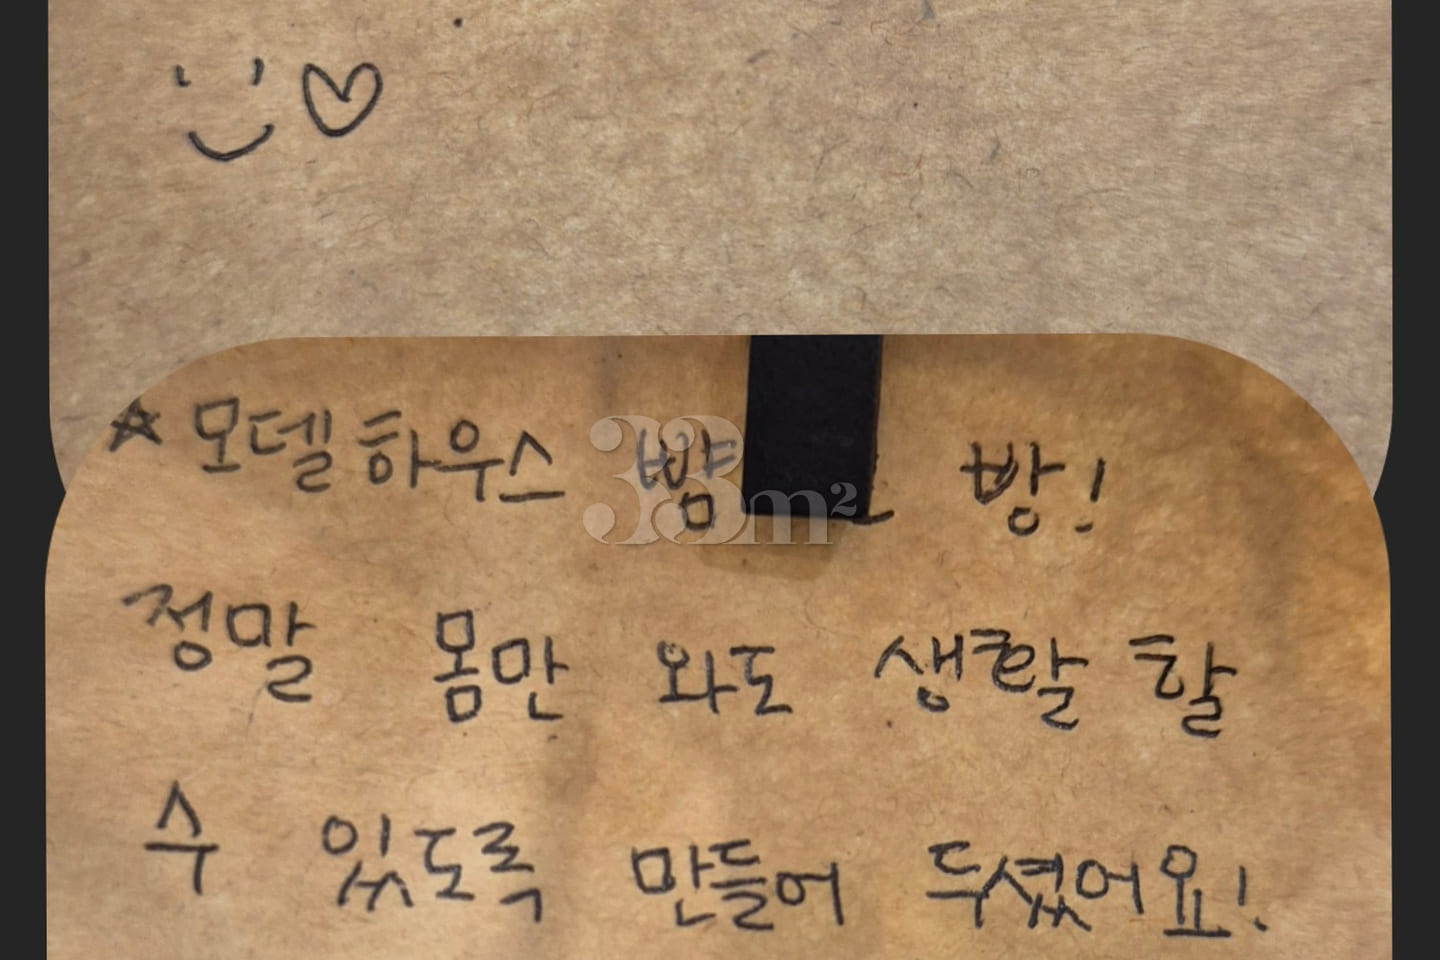 ☆ 모델하우스 뺨 방!
정말 몸만 와도 생활 할
수 있도록 만들어 두셨어요!
33m²